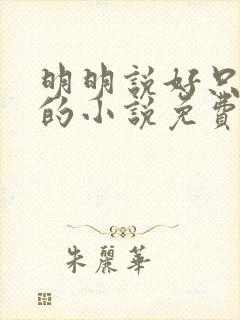 明明說好只
的小說免費
朱麗華